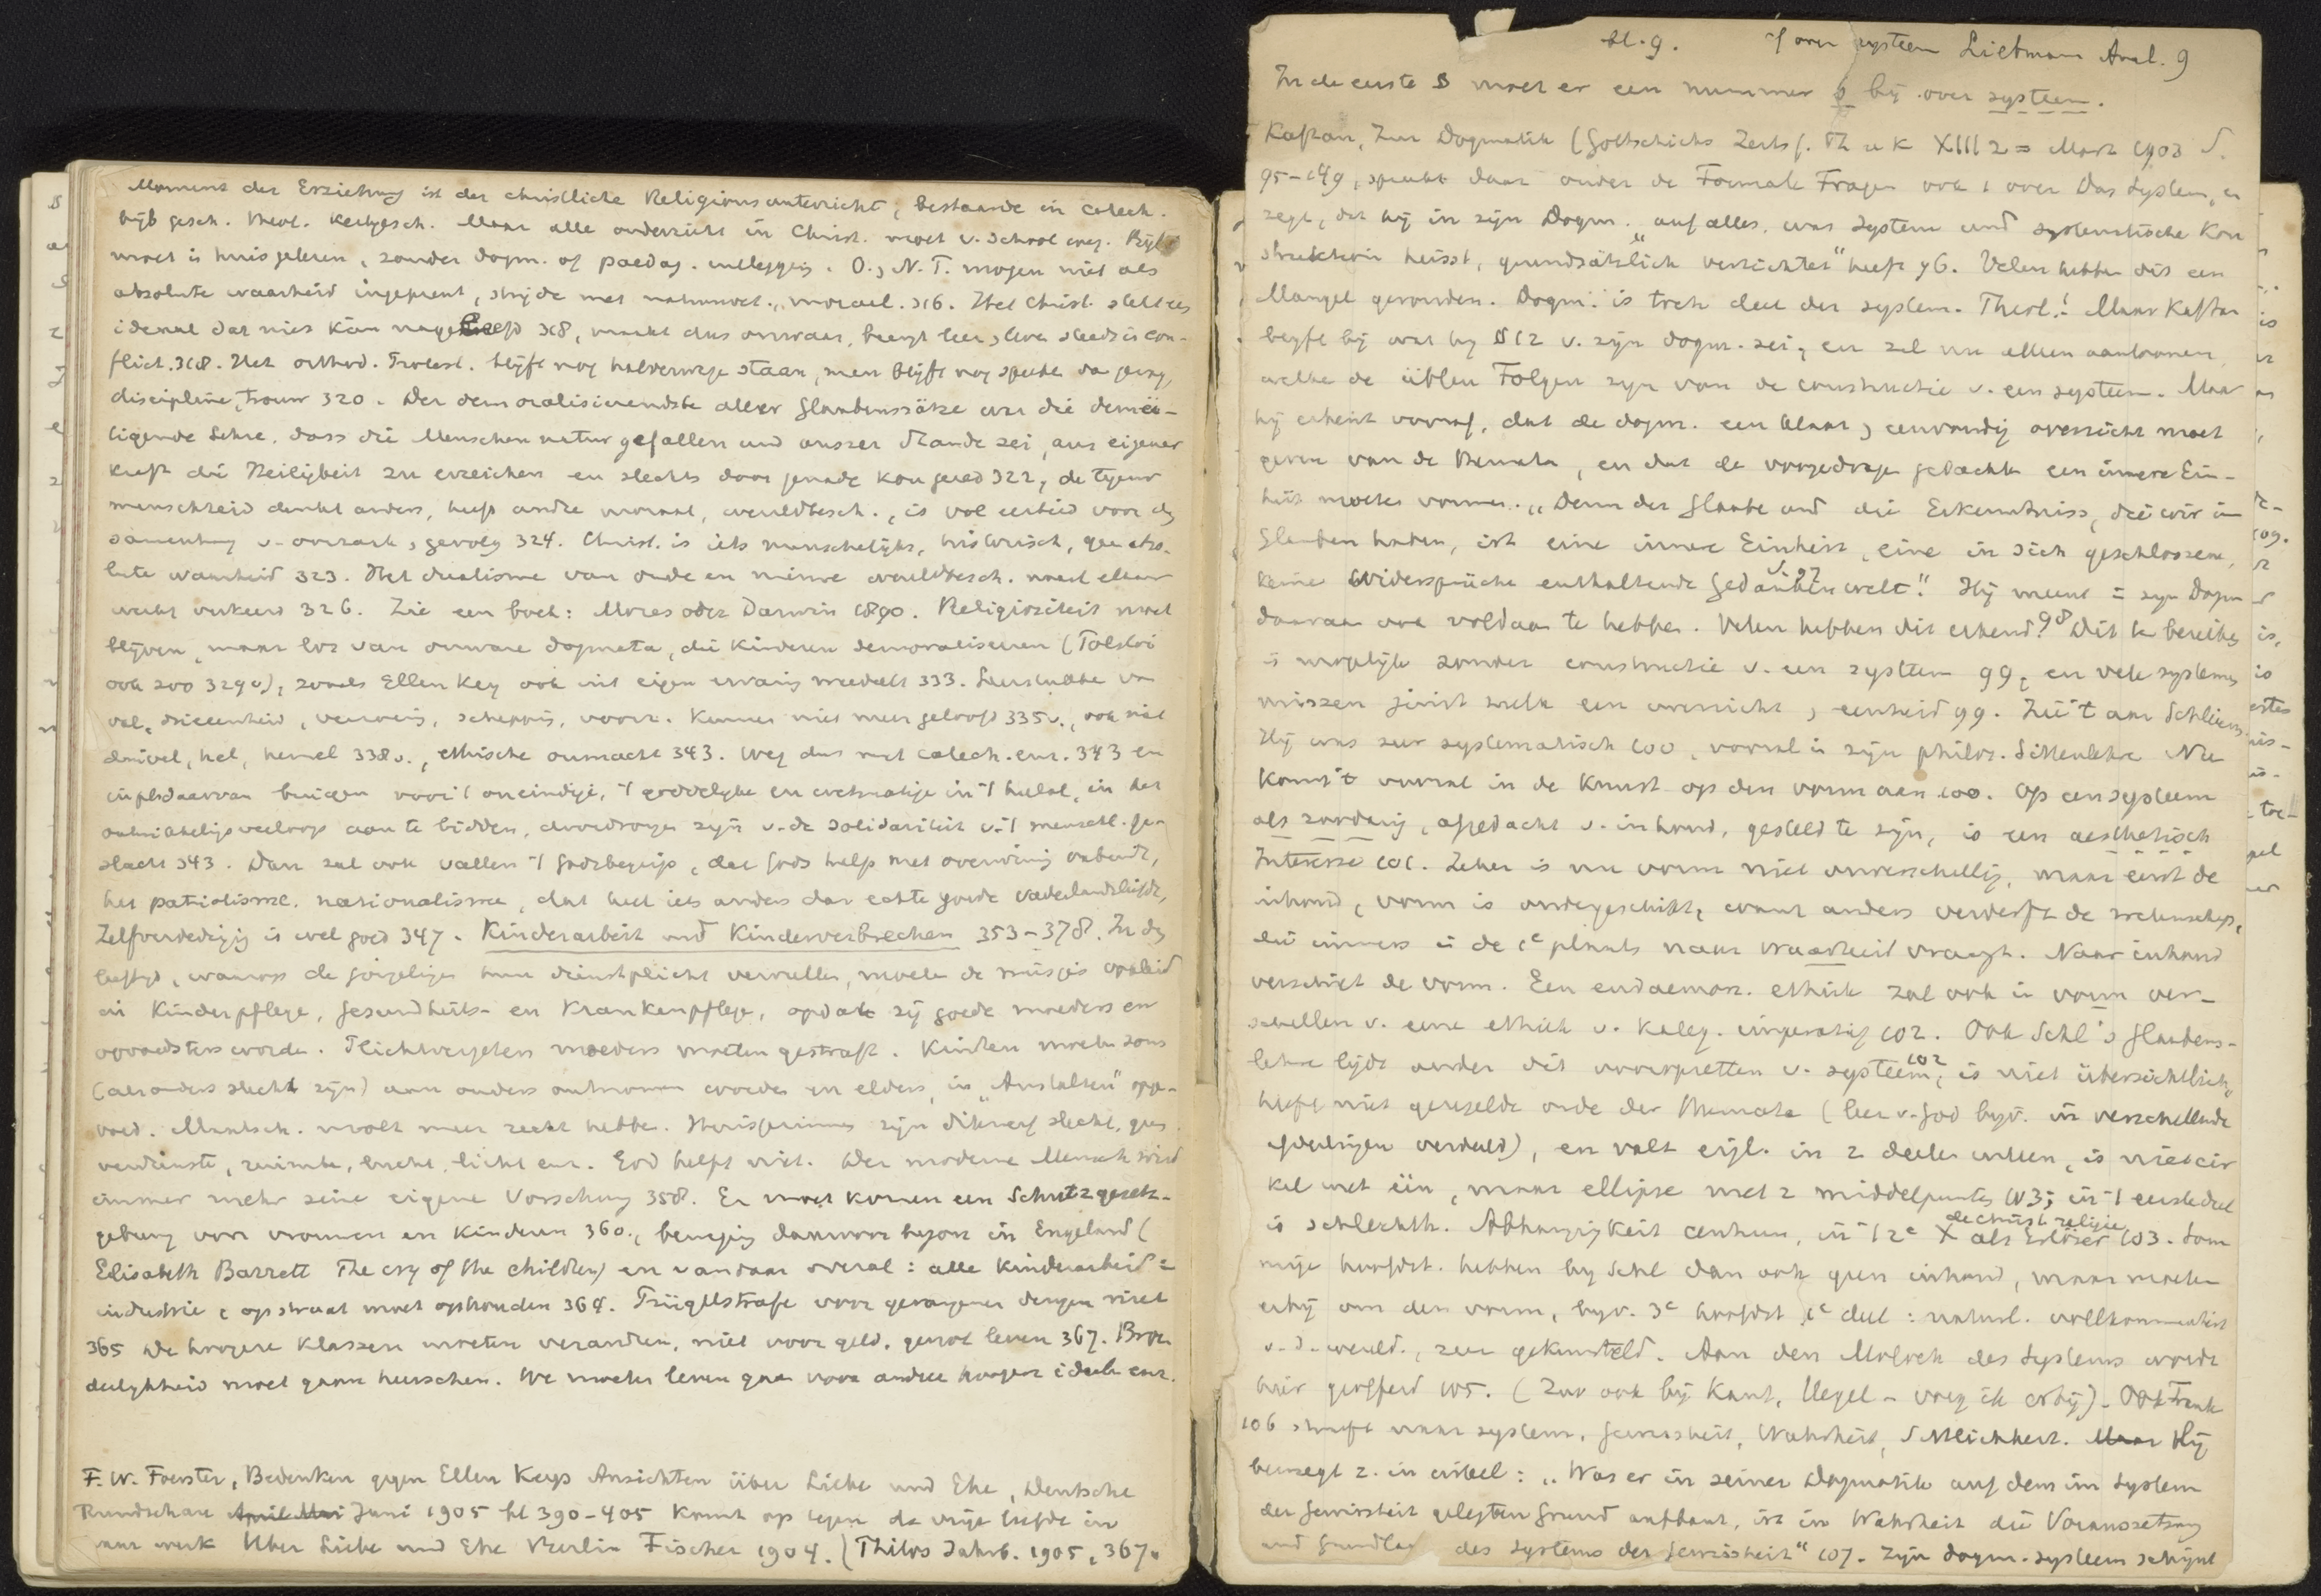 Moment der Erziehung ist der christliche Religionsunterricht, bestaande in catech.
bijb gesch. theol. Kerkgesch. Maar alle onderricht in Christ. moet v. school weg. Bijbel
moet in huis gelezen, zonder dogm. of paedag. uitleggig. O. , N. T. mogen niet als
absolute waarheid ingeprent, strijde met natuurwet., moraal. 316. Het Christ. stelt een
ideaal dat niet kan nageleefd 318, maakt dus onwaar, brengt leer , leven steeds in con-
flict. 318. Het orthod. Protest. blijft nog halverwege staan, men blijft nog spreke van
discipline, trouw 320. Der demoralisierendste aller Glaubenssätze war die demü-
tigende Lehre, dass die Menschennatur gefallen und ausser Stande sei, aus eigener
kraft die Heiligkeit zu erreichen en slechts door genade kon gered 322, de tegenw
menschheid denkt anders, heeft andre moraal, wereldbesch., is vol eerbied voor de
samenhang v. oorzaak , gevolg 324. Christ. is iets menschelijks, historisch, geen abso-
lute waarheid 323. Het dualisme van oude en nieuwe wereldbesch. naast elkaar
werkt verkeerd 326. Zie een boek: Moses oder Darwin 1890. Religiositeit moet
blijven, maar los van onware dogmata, die kinderen demoraliseeren (Tolstoi
ook zoo 329v), zooals Ellen Key ook uit eigen ervaring meedeelt 333.
val, drieeenheid, verzoening, schepping, voorz. kunnen niet meer geloofd 335v., ook niet
duivel, hel, hemel 338v., ethische onmacht 343. Weg dus met catech. enz. 343 en
in plsdaarvan buigen voor 't oneindige, 't goddelijke en wetmatige in 't heelal, in het
aan te bidden, doordrongen zijn v. de solidariteit v. 't menschel. ge-
slacht 343. Dan zal ook vallen 't godsbegrip, dat Gods help met overwinnig verbindt,
het patriotisme, nationalisme, dat heel iets anders dan echte goede vaderlandsliefde,
Zelfverdedigig is wel goed 347. Kinderarbeit und Kinderverbrechen 353-378. In de
leeftijd, waarop de jongelingen hun dienstplicht vervullen, moeten de meisjes opgeleid
in Kinderpflege, Gesundheits- en Krankenpflege, opdat zij goede moeders en
opvoedsters worden. Plichtvergeten moeders moeten gestraft. Kinderen moeten soms
(als ouders slecht zijn) aan ouders ontnomen worden en elders, in „Anstalten" opge-
voed. Maatsch. moet meer recht hebbe. Huisgezinnen zijn dikwerf slecht, geen
verdienste, ruimte, lucht, licht enz. God helpt niet. Der moderne Mensch wird
immer mehr seine eigene Vorsehung 358. Er moet komen een Schutzgesetz-
gebung voor vrouwen en kinderen 360., beweging daarvoor begon in Engeland (
Elisabeth Barrett The cry of the children) en vandaar overal: alle kinderarbeid in
industrie , op straat moet ophouden 364. Prügelstrafe voor gevangenen deugen niet
365 de hoogere klassen moeten veranderen, niet voor geld, genot leven 367. Broe
derlijkheid moet gaan heerschen. We moeten leven gaan voor andere hoogere ideeën enz.
F. W. Foerster, Bedenken gegen Ellen Keys Ansichten über Liebe und Ehe, Deutsche
Rundschau April Mai Juni 1905 bl 390-405 komt op tegen de vrije liefde in
haar werk Über Liebe und Ehe Berlin Fischer 1904. (Theol. Jahrb. 1905, 367v
bl. 9. of over systeem Liebmann Anal. 9
In de eerste § moet er een nummer 9 bij over systeem.
Kaftan, Zur Dogmatik (Gottschicks Zeits f. Th u K XIII 2 = Marz 1903 S.
95-149, spreekt daar onder de Formale Fragen ook 1 over Das System, en
zegt, dat hij in zijn Dogm. „auf alles, was System und systematische Kon
struktion heisst, grundsätzlich verzichtet" heeft 96. Velen hebben dit een
Mangel gevonden. Dogm. is toch deel der system. Theol.! Maar Kaftan
blijft bij wat hij § 12 v. zijn dogm. zei, en zal nu alleen aantoonen
welke de üblen Folgen zijn van de constructie v. een systeem. Maar
hij erkent vooraf, dat de dogm. een klaar , eenvoudig overzicht moet
geven van de themata, en dat de voorgedragen gedachten een innere Ein-
heit moeten vormen. „Denn der Glaube und die Erkenntniss, die wir im
Glauben haben, ist eine innere Einheit, eine in sich geschlossene,
keine Widersprüche enthaltende Gedankenwelt" S. 97 Hij meent in zijn Dogm
daaraan ook voldaan te hebben. Velen hebben dit erkend 98 Dit te bereiken
is mogelijk zonder constructie v. een systeem 99, en vele systemen
missen juist zulk een overzicht , eenheid 99. Zie 't aan Schleierm.
Hij was zeer systematisch 100, vooral in zijn philos. Sittenlehre Nu
komt 't vooral in de Kunst op den vorm aan 100. Op een systeem
als zoodanig, afgedacht v. inhoud, gesteld te zijn, is een aesthetisch
Interesse 101. Zeker is nu vorm niet onverschillig, maar eerst de
inhoud, vorm is ondergeschikt, want anders verderft de wetenschap,
die immers in de 1e plaats naar waarheid vraagt. Naar inhoud
verschilt de vorm. Een eudaemon. ethiek zal ook in vorm ver-
schillen v. eene ethiek v. kateg. imperatief 102. Ook Schl's Glaubens-
lehre lijdt onder dit vooropzetten v. systeem, 102 is niet übersichtlich,
heeft niet geregelde orde der themata (leer v. God bijv. in verschillende
afdeelingen verdeeld), en valt eigl. in 2 deelen uiteen, is niet cir
kel met één, maar ellipse met 2 middelpunten 103; in 't eerste deel
is schlechth. Abhängigkeit centrum, in 't 2e de christ. religie X als Erlöser 103. Som
mige hoofdst. hebben bij Schl dan ook geen inhoud, maar moeten
erbij om den vorm, bijv. 3e hoofdst 1e deel: natuurl. vollkommenheit
v. d. wereld., zeer gekunsteld. Aan den Moloch des Systems wordt
hier geofferd 105. (Zoo ook bij Kant, Hegel - voeg ik erbij). Ook Frank
106 streeft naar system, Gewissheit, Wahrheit, Sittlichkeit. Maar Hij
beweegt z. in cirkel: „Was er in seiner Dogmatik auf dem im System
der Gewissheit gelegten Grund aufbaut, ist in Wahrheit die Voraussetzung
und Grundlag des Systems der Gewissheit" 107. Zijn dogm. systeem schijnt